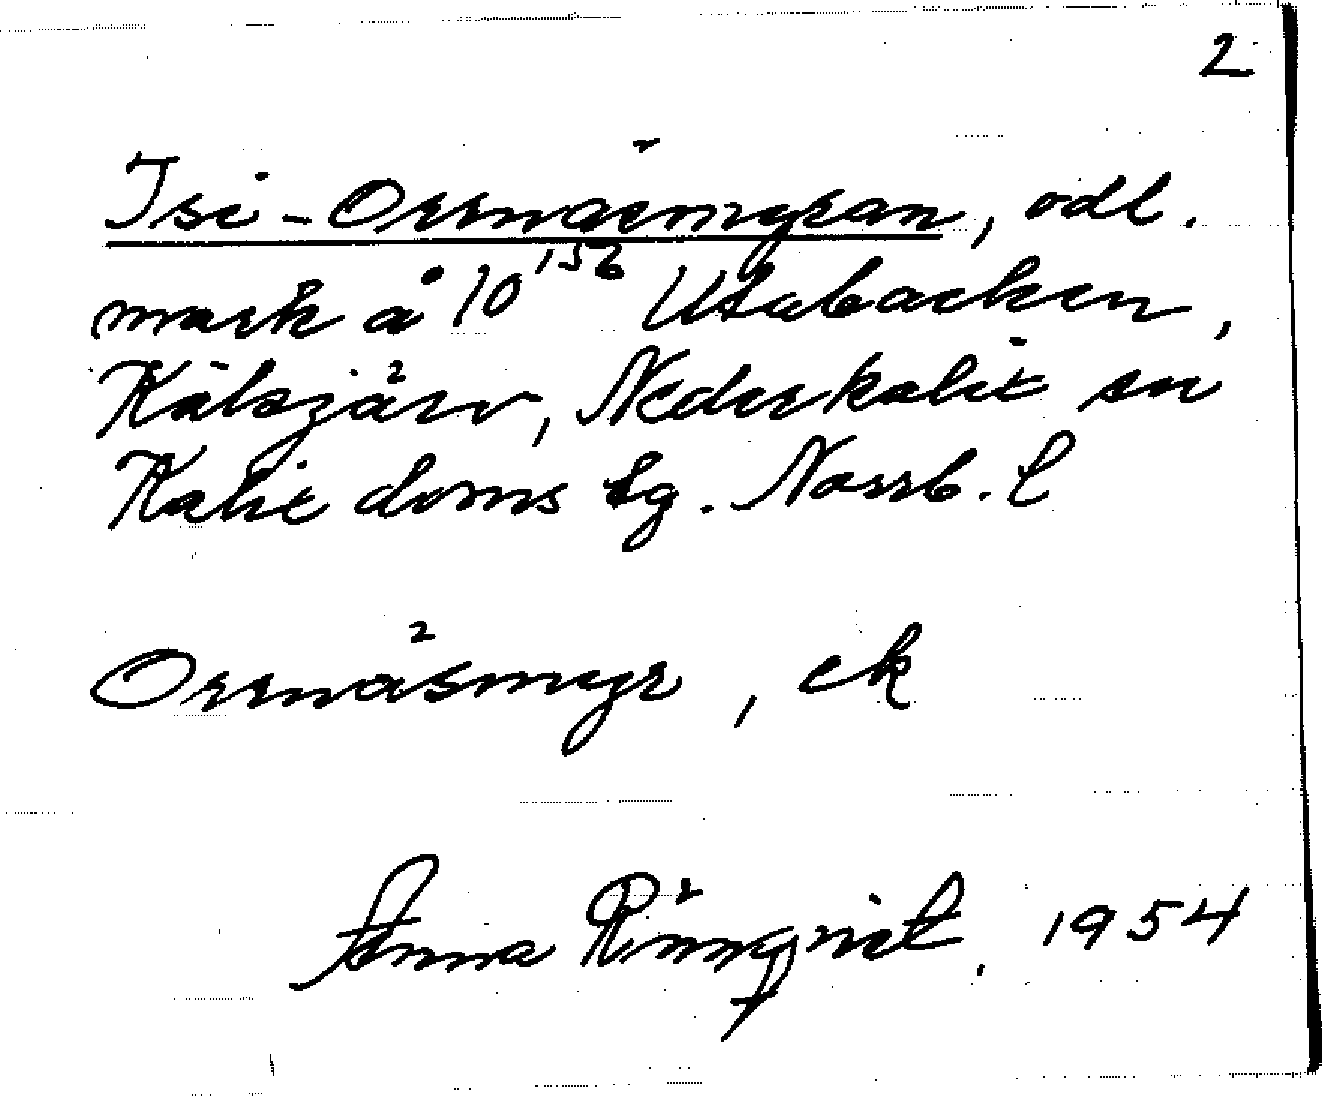 2
Isi-Orrnäsmyran, odl.
mark å 10¹⁵⁶ Utabacken,
Kälsjärv, Nederkalix sn
Kalix doms lg. Norrb. l
Orrnäsmyr, ek
Anna Rönnqvist, 1954